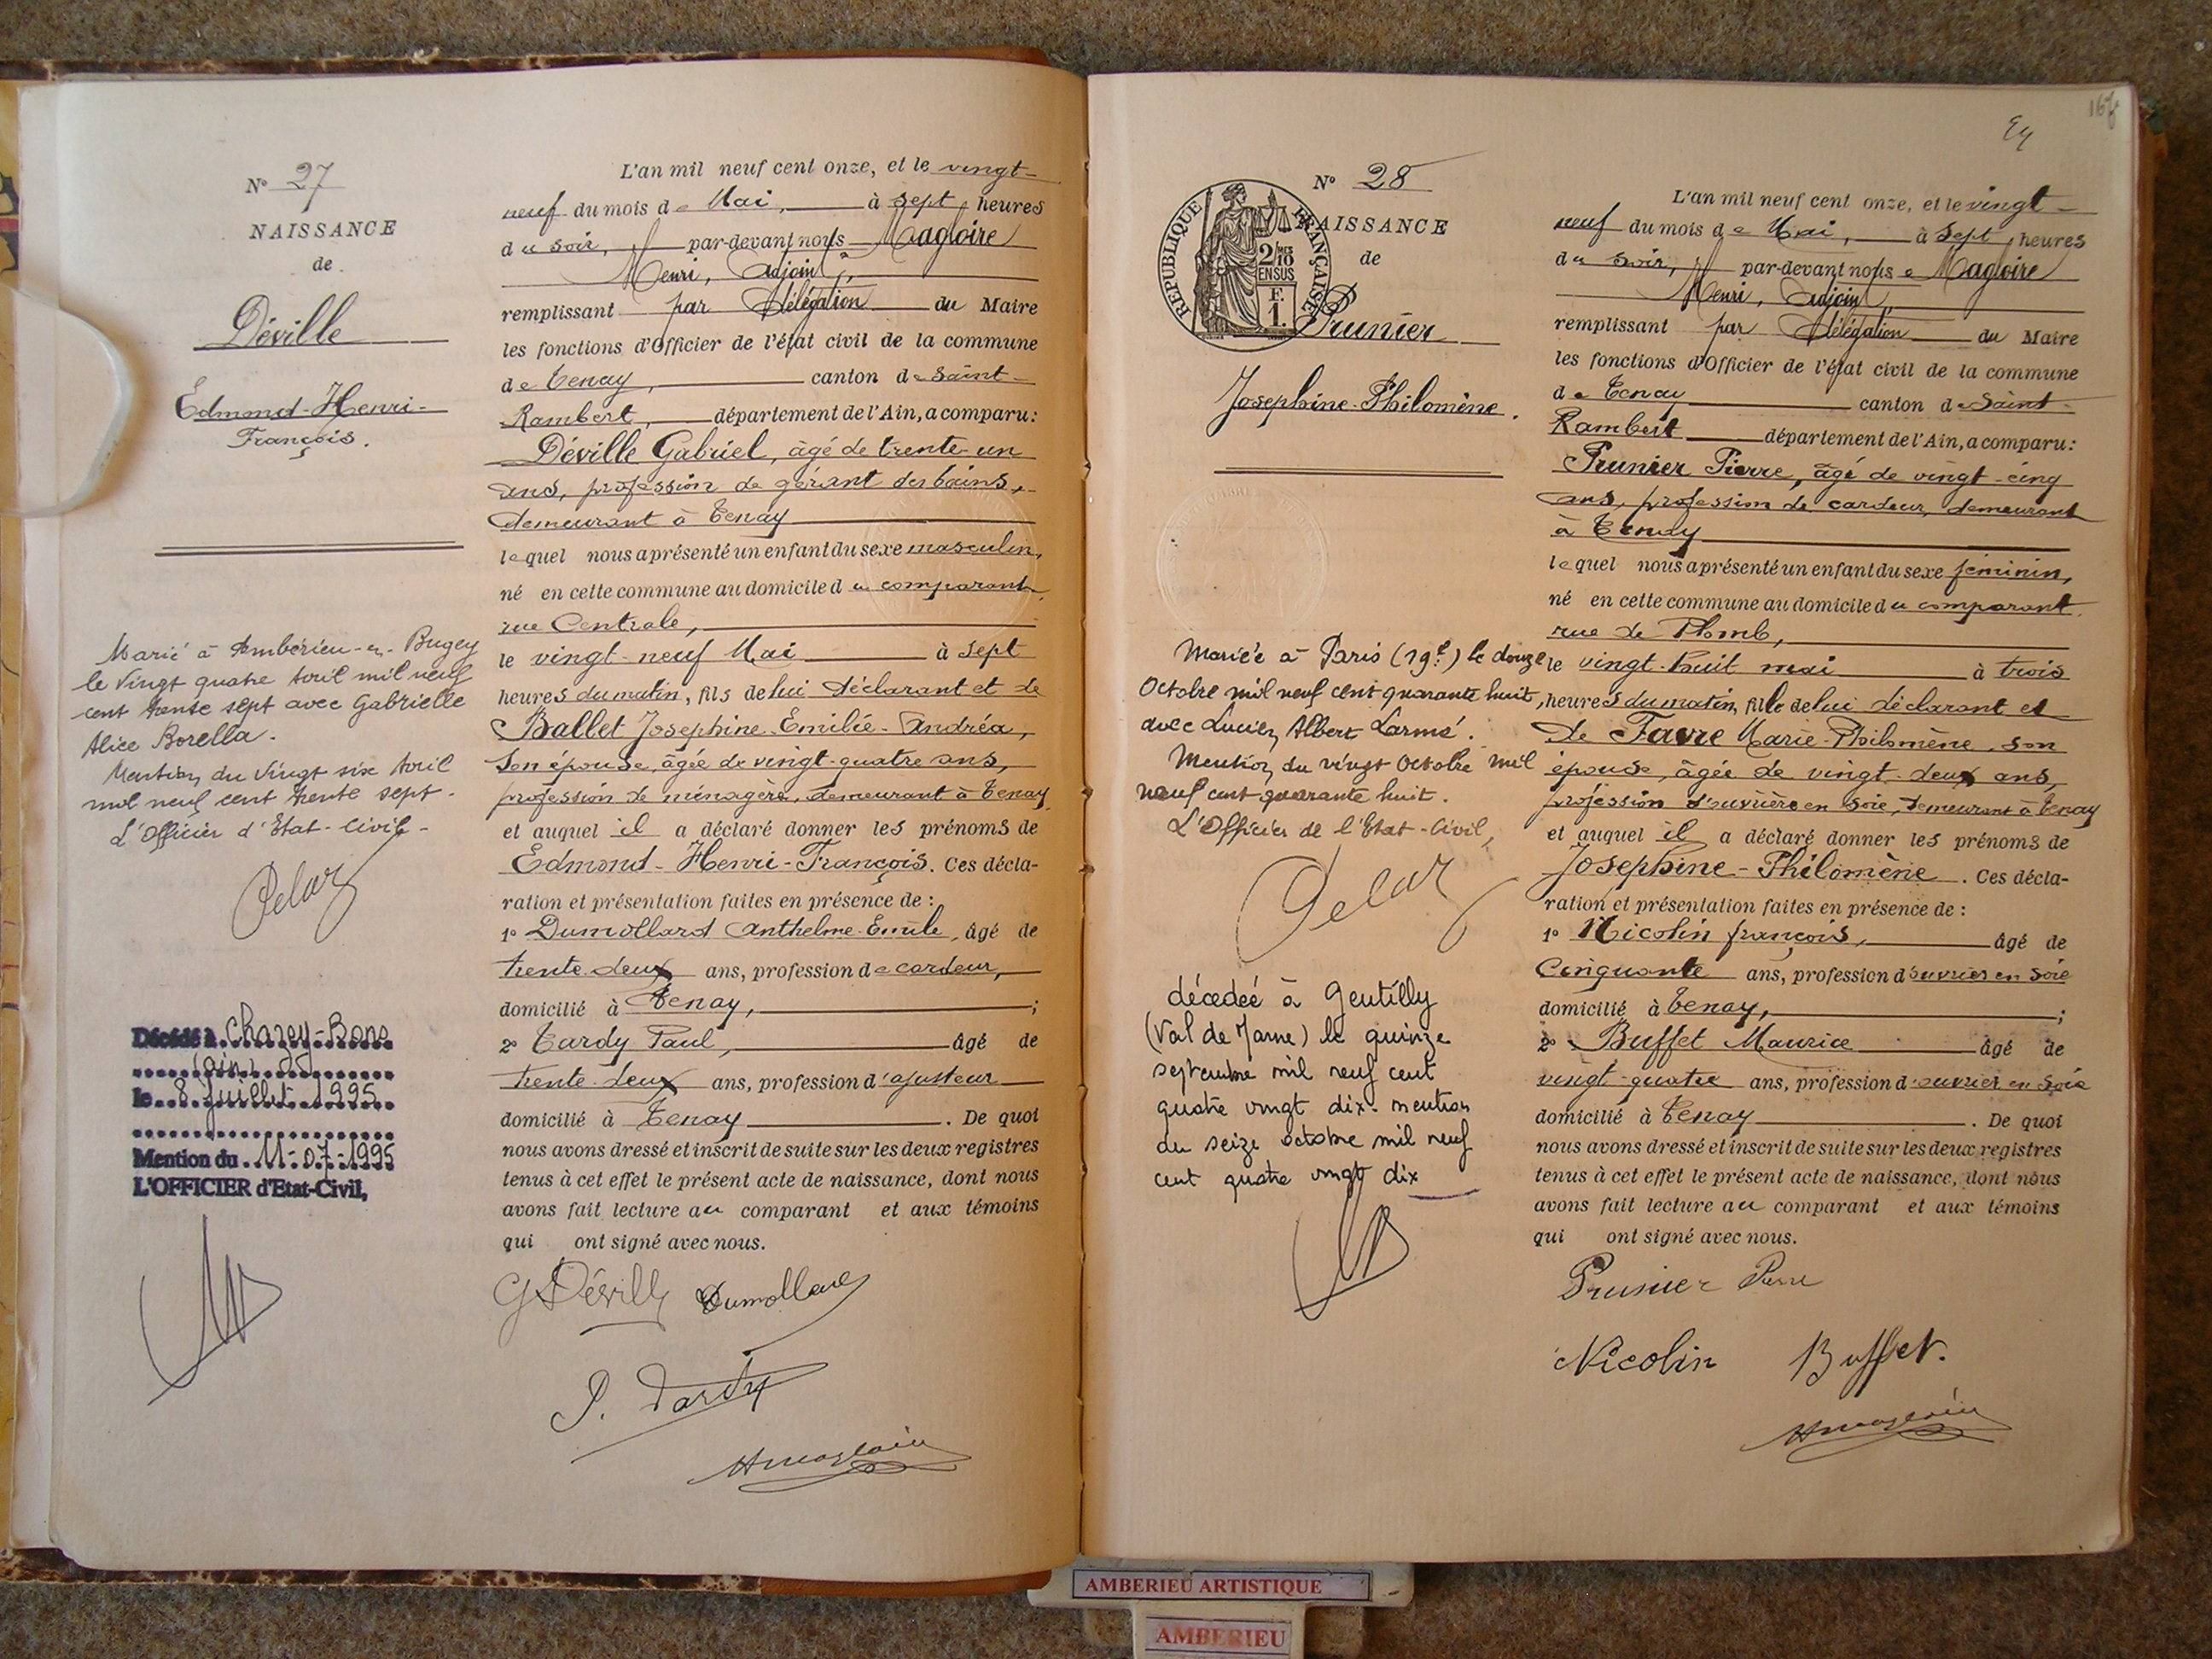 N° 27
NAISSANCE
de
Déville
Edmond-Henri-
François.
Marié à Ambérieu-en-Bugey
le vingt quatre Avril mil neuf
cent trente sept avec Gabrielle
Alice Borella.
Mention du vingt six Avril
mil neuf cent trente sept.
L'Officier d'Etat-Civil-
Pelaz
Décédé à Charey-Bons
(Ain)
le 8 juillet 1995
Mention du 11-07-1995
L'OFFICIER d'Etat-Civil,
L'an mil neuf cent onze, et le vingt-
neuf du mois de Mai, à sept heures
du soir, par-devant nous Magloire
Henri, Adjoint,
remplissant par délégation du Maire
les fonctions d'Officier de l'état civil de la commune
de Tenay, canton de Saint-
Rambert, département de l'Ain, a comparu:
Déville Gabriel, âgé de trente-un
ans, profession de gérant des bains,
demeurant à Tenay
lequel nous a présenté un enfant du sexe masculin,
né en cette commune au domicile du comparant,
rue Centrale,
le vingt-neuf Mai à sept
heures du matin, fils de lui déclarant et de
Ballet Josephine-Emilie-Andréa,
son épouse, âgée de vingt-quatre ans,
profession de ménagère, demeurant à Tenay
et auquel il a déclaré donner les prénoms de
Edmond-Henri-François. Ces décla-
ration et présentation faites en présence de :
1° Dumollard Anthelme-Emile, âgé de
trente-deux ans, profession de cardeur,
domicilié à Tenay, ;
2° Tardy Paul, âgé de
trente-deux ans, profession d'ajusteur
domicilié à Tenay. De quoi
nous avons dressé et inscrit de suite sur les deux registres
tenus à cet effet le présent acte de naissance, dont nous
avons fait lecture au comparant et aux témoins
qui ont signé avec nous.
G Déville Dumollard
P. Tardy
HMagloire
167
N° 28
NAISSANCE
de
RÉPUBLIQUE FRANÇAISE
2/10 EN SUS
F. 1.
Prunier
Josephine-Philomène.
Mariée à Paris (19e) le douze
Octobre mil neuf cent quarante huit,
avec Lucien, Albert Larmé.
Mention du vingt Octobre mil
neuf cent quarante huit.
L'Officier de l'Etat-Civil,
Pelaz
décedeé à Gentilly
(Val de Marne) le quinze
septembre mil neuf cent
quatre vingt dix. mention
du seize octobre mil neuf
cent quatre vingt dix
L'an mil neuf cent onze, et le vingt-
neuf du mois de Mai, à sept heures
du soir, par-devant nous Magloire
Henri, Adjoint,
remplissant par délégation du Maire
les fonctions d'Officier de l'état civil de la commune
de Tenay canton de Saint-
Rambert département de l'Ain, a comparu:
Prunier Pierre, âgé de vingt-cinq
ans, profession de cardeur, demeurant
à Tenay
lequel nous a présenté un enfant du sexe féminin,
né en cette commune au domicile du comparant
rue de Plomb,
le vingt-huit mai à trois
heures du matin, fille de lui déclarant et
de Favre Marie-Philomène, son
épouse, âgée de vingt-deux ans,
profession d'ouvrière en soie, demeurant à Tenay
et auquel il a déclaré donner les prénoms de
Josephine-Philomène. Ces décla-
ration et présentation faites en présence de :
1° Nicolin françois, âgé de
Cinquante ans, profession d'ouvrier en soie
domicilié à Tenay, ;
2° Buffet Maurice âgé de
vingt-quatre ans, profession d'ouvrier en soie
domicilié à Tenay. De quoi
nous avons dressé et inscrit de suite sur les deux registres
tenus à cet effet le présent acte de naissance, dont nous
avons fait lecture au comparant et aux témoins
qui ont signé avec nous.
Prunier Pierre
Nicolin Buffet.
HMagloire
AMBERIEU ARTISTIQUE
AMBERIEU